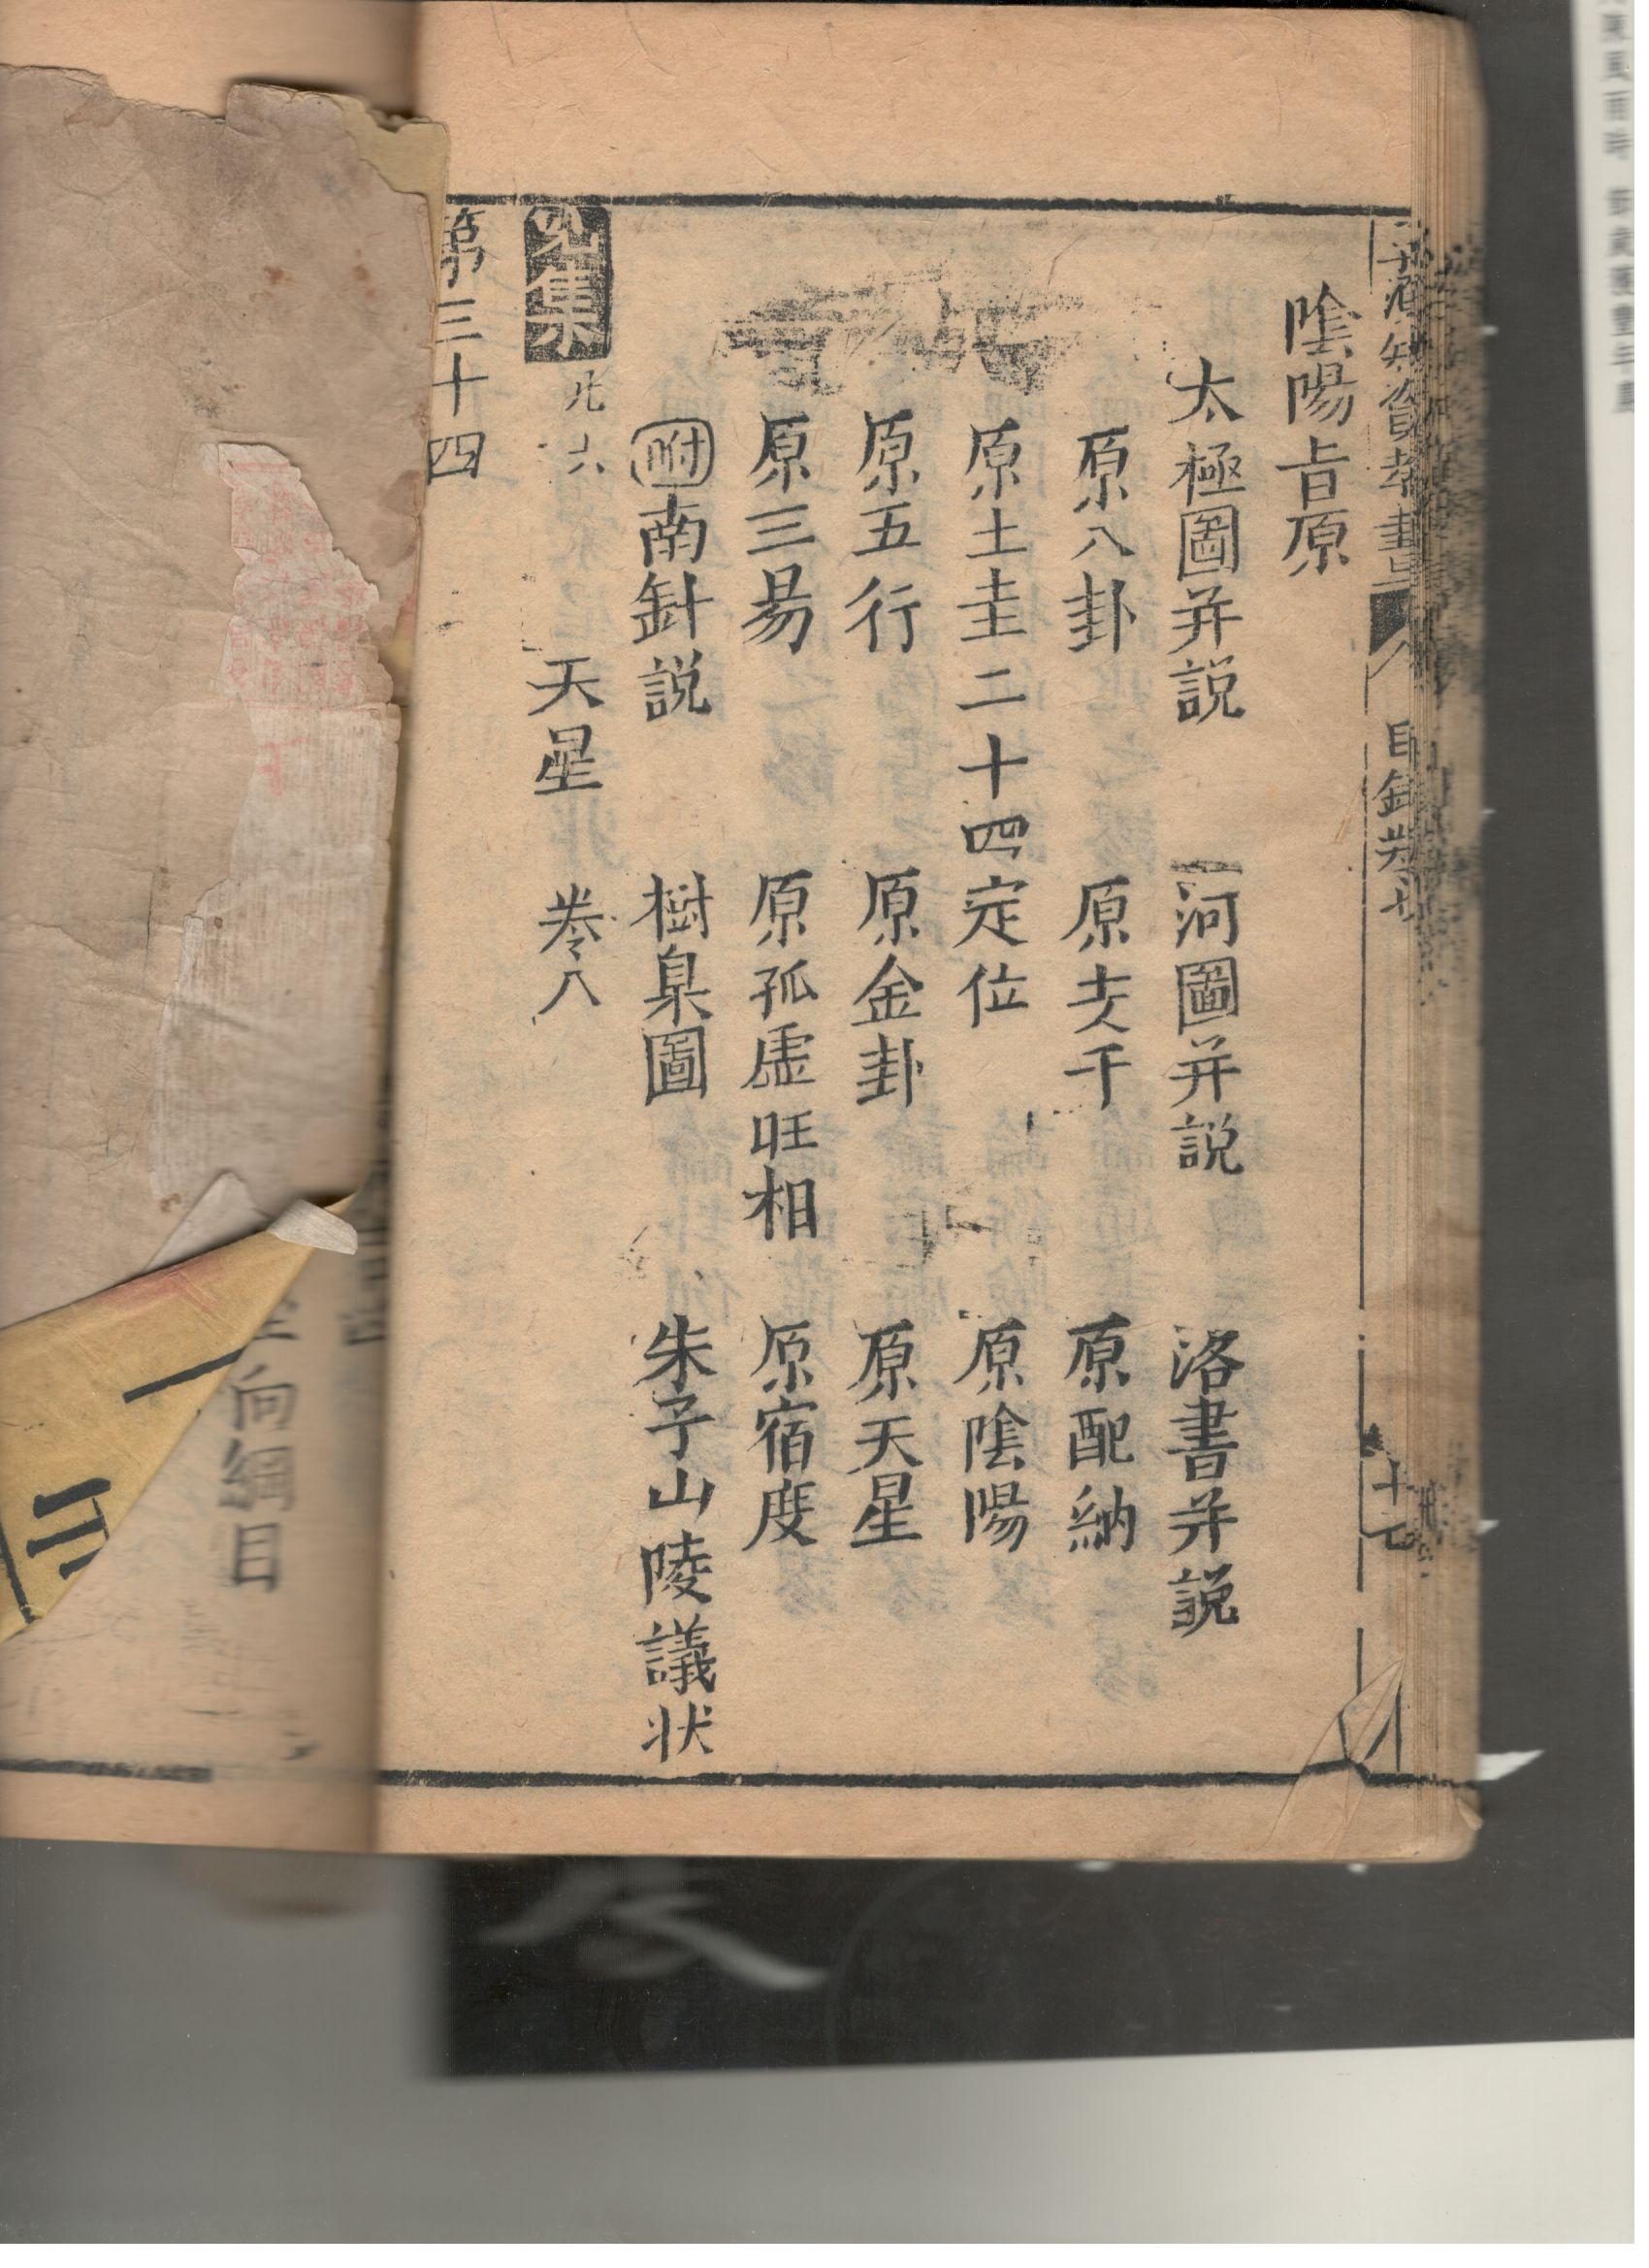 陰陽旨原
太極圖并説 河圖并説 洛書并説
原八卦 原支干 原配納
原土圭二十四定位 原陰陽
原五行 原金卦 原天星
原三昜 原孤虛旺相 原宿度
附南針説 樹臬圖 朱子山陵議状
集 天星 卷八
第三十四
向綱目